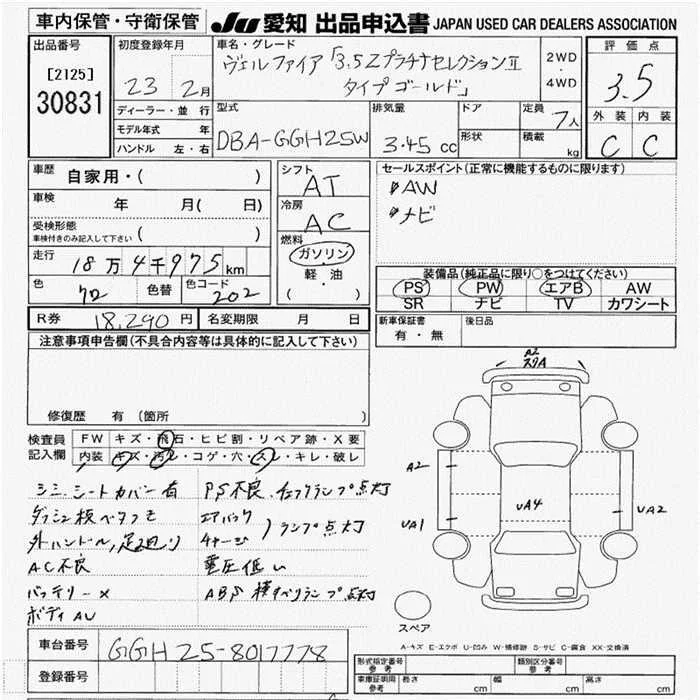 車内保管・守衛保管 JU 愛知 出品申込書 JAPAN USED CAR DEALERS ASSOCIATION
出品番号
[2125]
30831
初度登録年月
23 2月
ディーラー・並行
モデル年式 年
ハンドル 左・右
車名・グレード
ヴェルファイア「3.5Zプラチナセレクション II
タイプゴールド」
2WD
・
4WD
型式
DBA-GGH25W
排気量
3.45 cc
ドア
形状
定員
7人
積載
kg
評価点
3.5
外装 内装
C C
車歴
自家用・( )
車検
年 月( 日)
受検形態
車検付きのみ記入して下さい ( )
走行
18万4千975km
色
色替
色コード
202
シフト
AT
冷房
AC
燃料
ガソリン
軽・油
( )
セールスポイント(正常に機能するものに限ります)
AW
ナビ
装備品(純正品に限り○をつけてください)
PS PW エアB AW
SR ナビ TV カワシート
R券 18,290 円 名変期限 月 日
新車保証書
有・無
後日品
注意事項申告欄(不具合内容等は具体的に記入して下さい)
修復歴 有 (箇所 )
検査員
記入欄
FW キズ・飛石・ヒビ割・リペア跡・X要
内装 キズ・汚レ・コゲ・穴・スレ・キレ・破レ
シミ シートカバー有
ダッシュ板ベタつき
外ハンドル, 足廻り
AC不良
バッテリー×
ボディ AU
PS不良. チェックランプ点灯
エアバック
チャージ ) ランプ点灯
電圧低い
ABS 横すべりランプ点灯
A2
スリA
A2
UA1
UA4
UA2
スペア
A-キズ E-エクボ U-凹み W-補修跡 S-サビ C-腐食 XX-交換済
車台番号
GGH25-8017778
登録番号
形式指定番号
参考
類別区分番号
参考
車庫証明用
参考
長さ cm
幅 cm
高さ cm